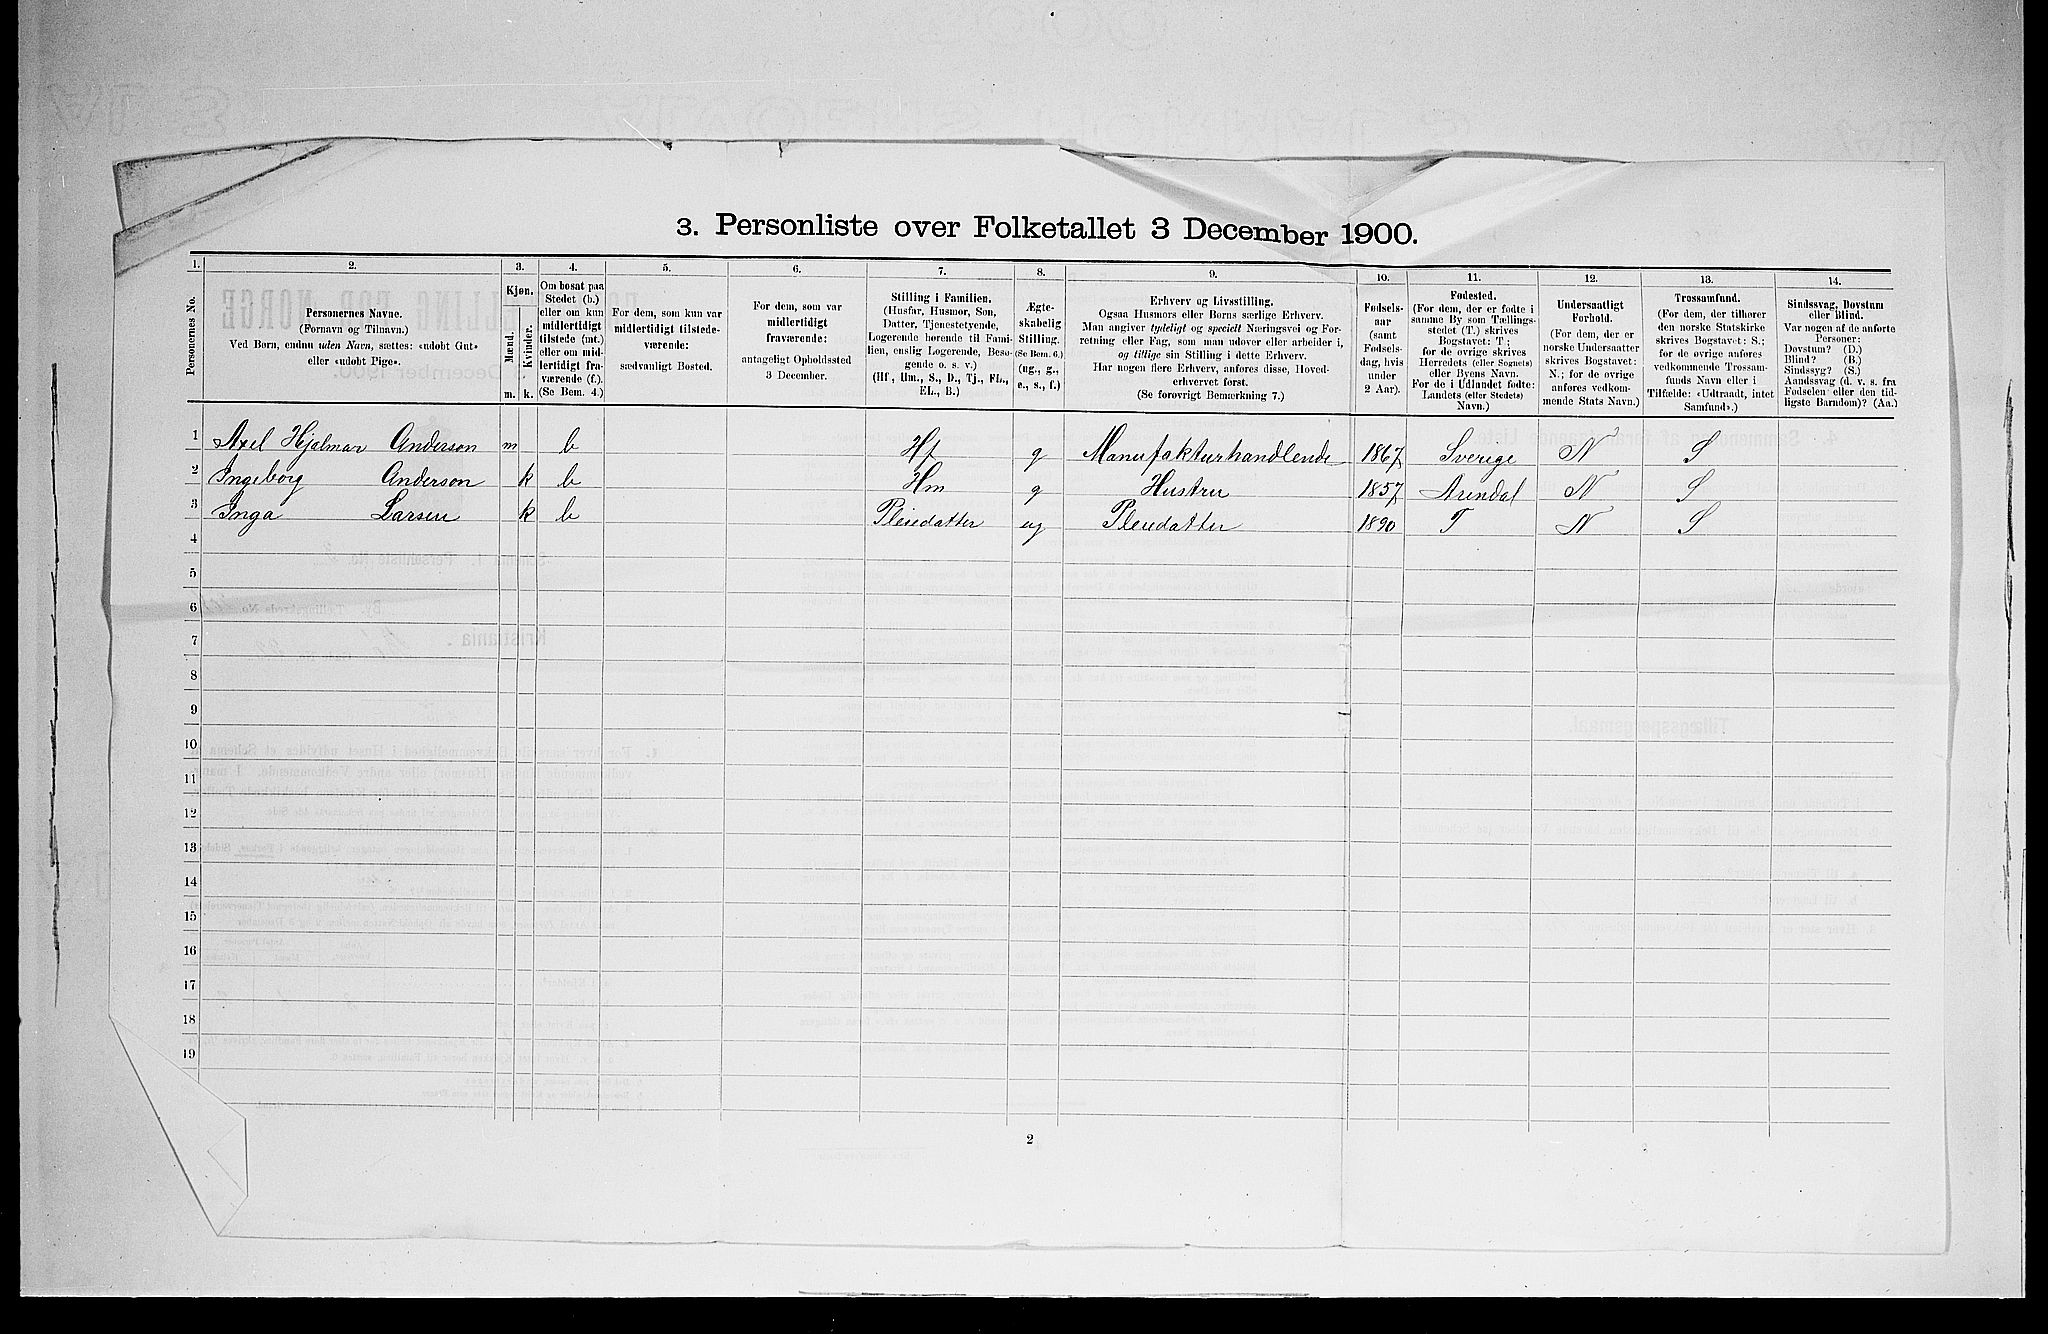 3. Personliste over Folketallet 3 December 1900.
1. 2. 3. 4. 5. 6. 7. 8. 9. 10. 11. 12. 13. 14.
Personernes No.
Personernes Navne.
(Fornavn og Tilnavn.)
Ved Børn, endnu uden Navn, sættes: «udøbt Gut»
eller «udøbt Pige».
Kjøn.
Mænd.
Kvinder.
m. k.
Om bosat paa
Stedet (b.)
eller om kun
midlertidigt
tilstede (mt.)
eller om mid-
lertidigt fra-
værende (f.).
(Se Bem. 4.)
For dem, som kun var
midlertidigt tilstede-
værende:
sædvanligt Bosted.
For dem, som var
midlertidigt
fraværende:
antageligt Opholdssted
3 December.
Stilling i Familien.
(Husfar, Husmor, Søn,
Datter, Tjenestetyende,
Logerende hørende til Fami-
lien, enslig Logerende, Besø-
gende o. s. v.)
(Hf, Hm, S., D., Tj., FL.,
EL., B.)
Ægte-
skabelig
Stilling.
(Se Bem. 6.)
(ug., g.,
e., s., f.)
Erhverv og Livsstilling.
Ogsaa Husmors eller Børns særlige Erhverv.
Man angiver tydeligt og specielt Næringsvei og For-
retning eller Fag, som man udøver eller arbeider i,
og tillige sin Stilling i dette Erhverv.
Har nogen flere Erhverv, anføres disse, Hoved-
erhvervet først.
(Se forøvrigt Bemærkning 7.)
Fødsels-
aar
(samt
Fødsels-
dag, hvis
under
2 Aar).
Fødested.
(For dem, der er fødte i
samme By som Tællings-
stedet (T.) skrives
Bogstavet: T;
for de øvrige skrives
Herredets (eller Sognets)
eller Byens Navn.
For de i Udlandet fødte:
Landets (eller Stedets)
Navn.)
Undersaatligt
Forhold.
(For dem, der er
norske Undersaatter
skrives Bogstavet:
N.; for de øvrige
anføres vedkom-
mende Stats Navn.)
Trossamfund.
(For dem, der tilhører
den norske Statskirke
skrives Bogstavet: S.;
for de øvrige anføres
vedkommende Trossam-
funds Navn eller i
Tilfælde: «Udtraadt, intet
Samfund».)
Sindssvag, Døvstum
eller Blind.
Var nogen af de anførte
Personer:
Døvstum? (D.)
Blind? (B.)
Sindssyg? (S.)
Aandssvag (d. v. s. fra
Fødselen eller den tid-
ligste Barndom)? (Aa.)
1 Axel Hjalmar Anderson m b Hf g Manufakturhandlende 1867 Sverige N S
2 Ingeborg Anderson k b Hm g Hustru 1857 Arendal N S
3 Inga Larsen k b Pleiedatter ug Pleiedatter 1890 T N S
4
5
6
7
8
9
10
11
12
13
14
15
16
17
18
19
2